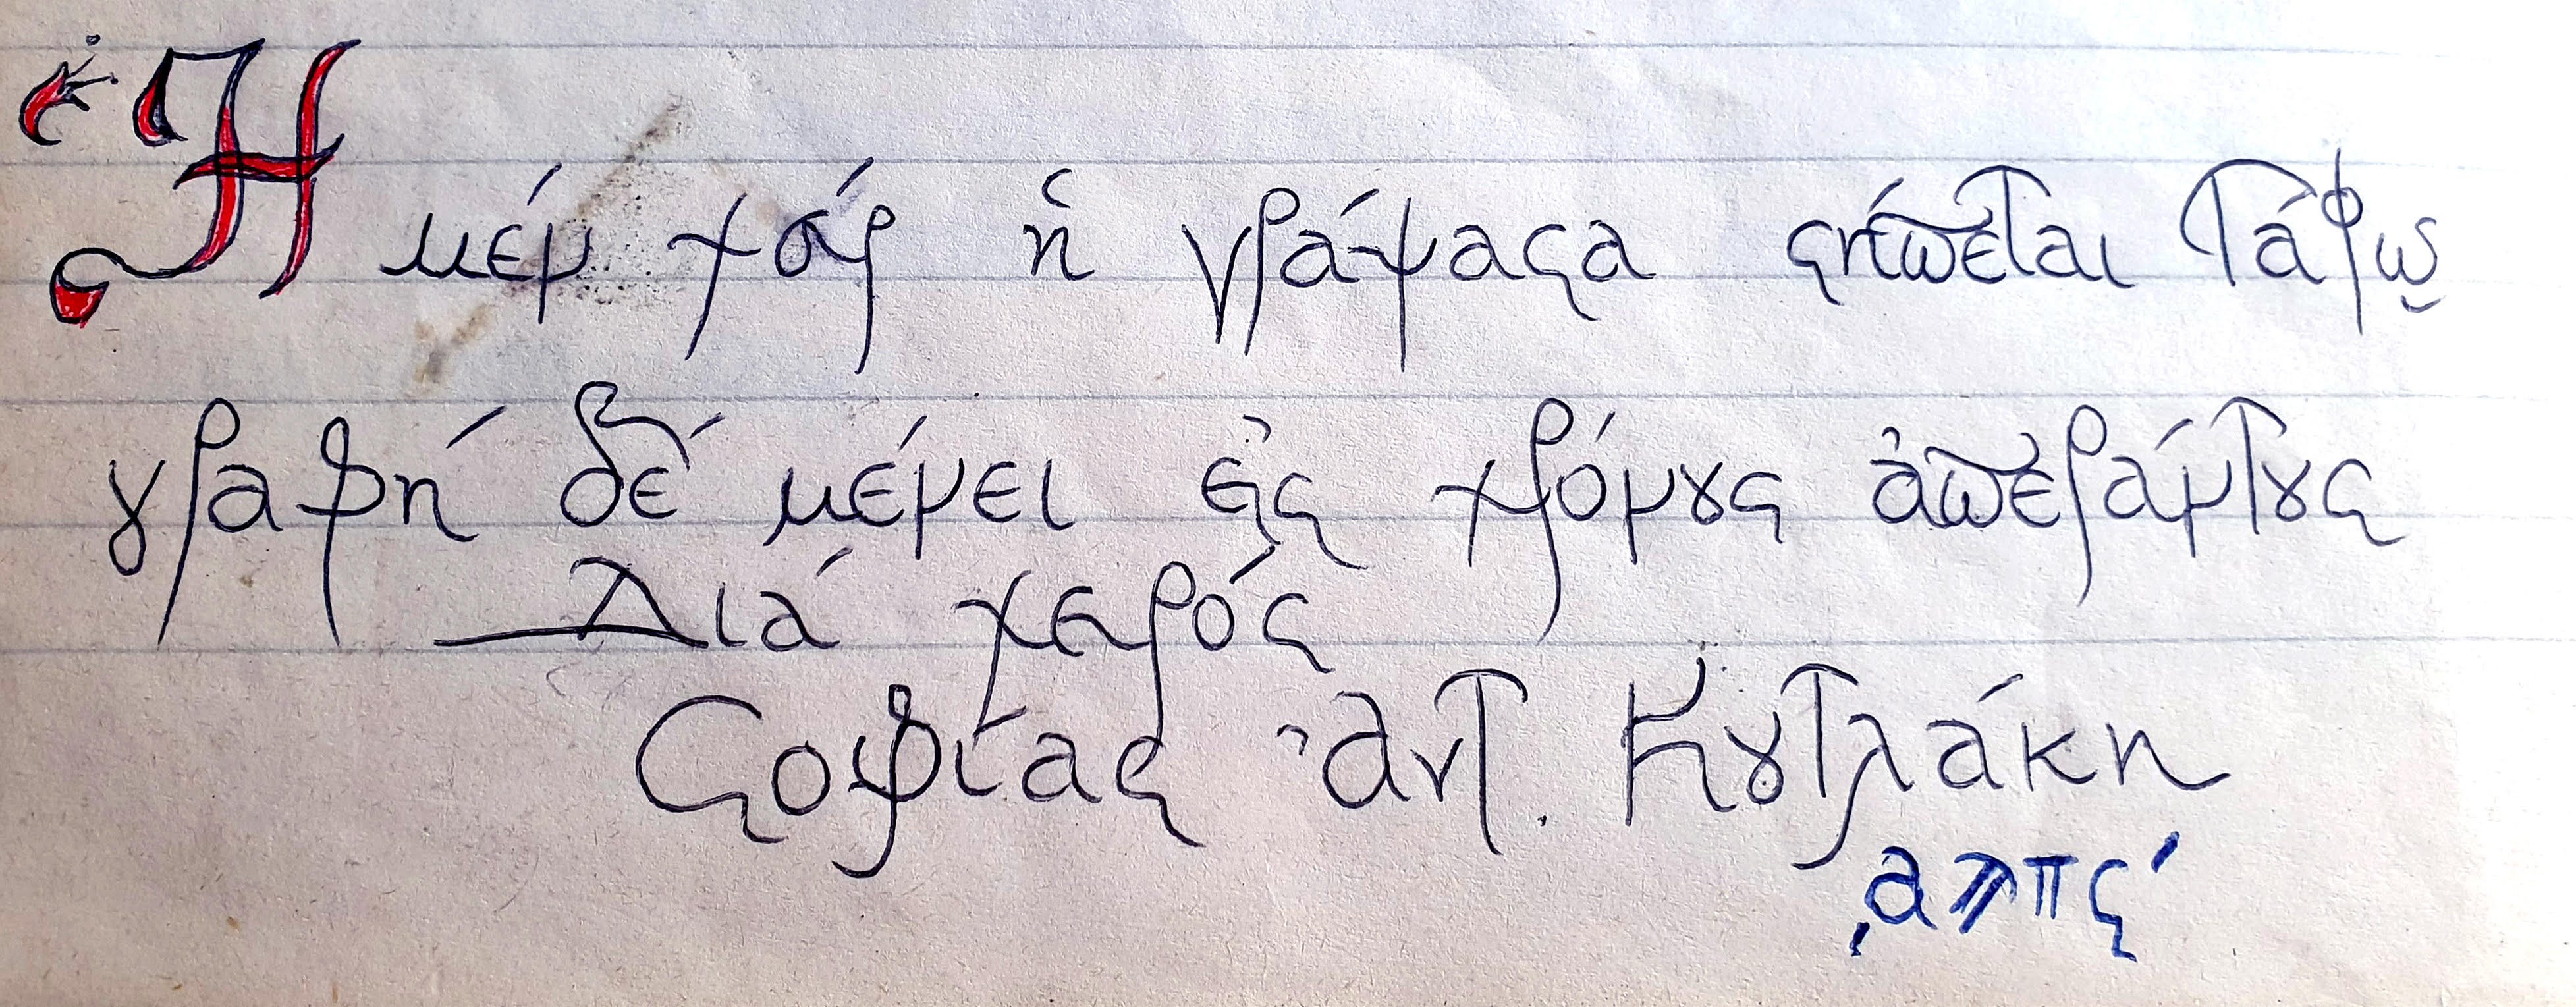 Ἡ μέν χείρ ἡ γράψασα σήπεται τάφῳ
γραφή δέ μένει εἰς χρόνȣς ἀπεράντȣς
Διά χειρός
Σοφίας Ἀντ. Κȣτλάκη
͵αϡπϛʹ